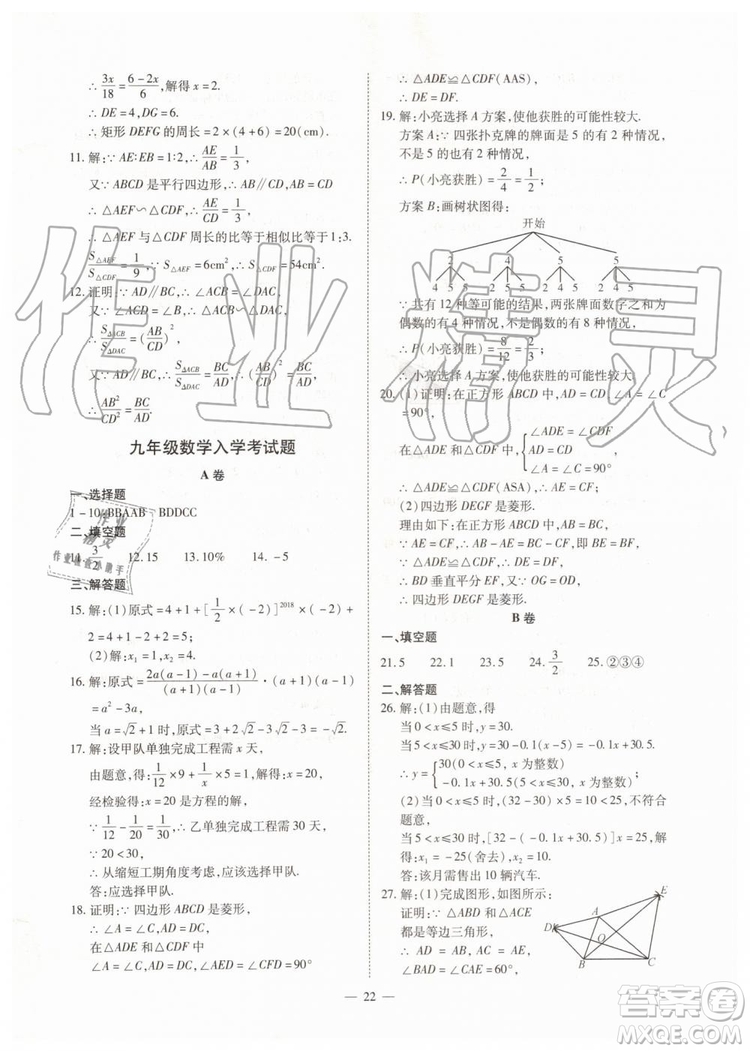 ∴ 3x/18 = (6-2x)/6,解得 x=2.
∴ DE=4,DG=6.
∴ 矩形 DEFG 的周长=2×(4+6)=20(cm).
11.解:∵ AE∶EB=1∶2,∴ AE/AB=1/3,
又∵ ABCD 是平行四边形,∴ AB∥CD,
∴ △AEF∽△CDF,∴ AE/CD=1/3,
∴ △AEF 与△CDF 周长的比等于相似比等于 1∶3.
S△AEF/S△CDF=1/9,∵ S△AEF=6cm²,∴ S△CDF=54cm².
12.证明:∵ AB∥CD,∴ ∠BAC=∠DAC,
又∵ ∠ACD=∠B,∴ △ACB∽△DAC,
∴ S△ACB/S△DAC=(AB/CD)²,
又∵ AD∥BC,∴ S△ACB/S△DAC=BC/AD,
∴ AB²/CD²=BC/AD.
九年级数学入学考试题
A 卷
一、选择题
1-10 BBAAB BDDCC
二、填空题
11. 3/2 12.15 13.10% 14.-5
三、解答题
15.解:(1)原式=4+1+[1/2×(-2)]²⁰¹⁸×(-2)+
2=5;
(2)解:x₁=2,x₂=4.
16.解:原式=2a(a-1)-a(a+1)/(a+1)(a-1)·(a+1)(a-1)
=a²-3a,
当 a=√2+1 时,原式=3+2√2-3√2-3=-√2.
17.解:设甲队单独完成工程需 x 天,
由题意,得1/12×9+1/x×5=1,
经检验得:x=20 是方程的解,
∵ 1/12-1/20=1/30,∴ 乙单独完成工程需 30 天,
∵ 20<30,
∴ 从缩短工期角度考虑,应该选择甲队.
答:应选择甲队.
18.证明:∵ 四边形 ABCD 是菱形,
∴ ∠A=∠C,AD=CD,
在△ADE 和△CDF 中
∠A=∠C,∠AED=∠CFD=90°
∴ △ADE≌△CDF(AAS),
∴ DE=DF.
19.解:小亮选择 A 方案,使他获胜的可能性较大.
方案 A:∵ 四张扑克牌的牌面是 5 的有 2 种情况,
不是 5 的也有 2 种情况,
∴ P(小亮获胜)=2/4=1/2;
方案 B:画树状图得:
开始
2 4 5 5
4 5 5 2 5 5 2 4 5 2 4 5
∵ 共有 12 种等可能的结果,两张牌面数字之和为
偶数的有 4 种情况,不是偶数的有 8 种情况,
∴ P(小亮获胜)=8/12=2/3;
∴ 小亮选择 A 方案,使他获胜的可能性较大.
20.(1)证明:在正方形 ABCD 中,AD=CD,∠A=∠C
=90°,
在△ADE 和△CDF 中,
{∠ADE=∠CDF
AD=CD
∠A=∠C=90°
∴ △ADE≌△CDF(ASA),∴ AE=CF;
(2)四边形 DEGF 是菱形.
理由如下:在正方形 ABCD 中,AB=BC,
∵ AE=CF,
∴ AB-AE=BC-CF,即 BE=BF,
∴ BD 垂直平分 EF,∵ OG=OD,
∴ 四边形 DEGF 是菱形.
B 卷
一、填空题
21.5 22.1 23.50° 24. 3/2 25.②③④
二、解答题
26.解:(1)由题意,得
当 0<x≤5 时,y=30.
当 5<x≤30 时,y=30-0.1(x-5)=-0.1x+30.5.
∴ y={30(0<x≤5,x 为整数)
-0.1x+30.5(5<x≤30,x 为整数);
(2)当 0<x≤5 时,(32-30)×5=10<25,不符合
题意,
当 5<x≤30 时,[32-(-0.1x+30.5)]x=25,
解得:x₁=-25(舍去),x₂=10.
答:该月需售出 10 辆汽车.
27.解:(1)完成图形,如图所示:
证明:∵ △ABD 和△ACE
都是等边三角形,
∴ AD=AB,AC=AE,
∠BAD=∠CAE=60°,
D A E O B C
— 22 —
作业精灵
作业检查小助手
答案圈